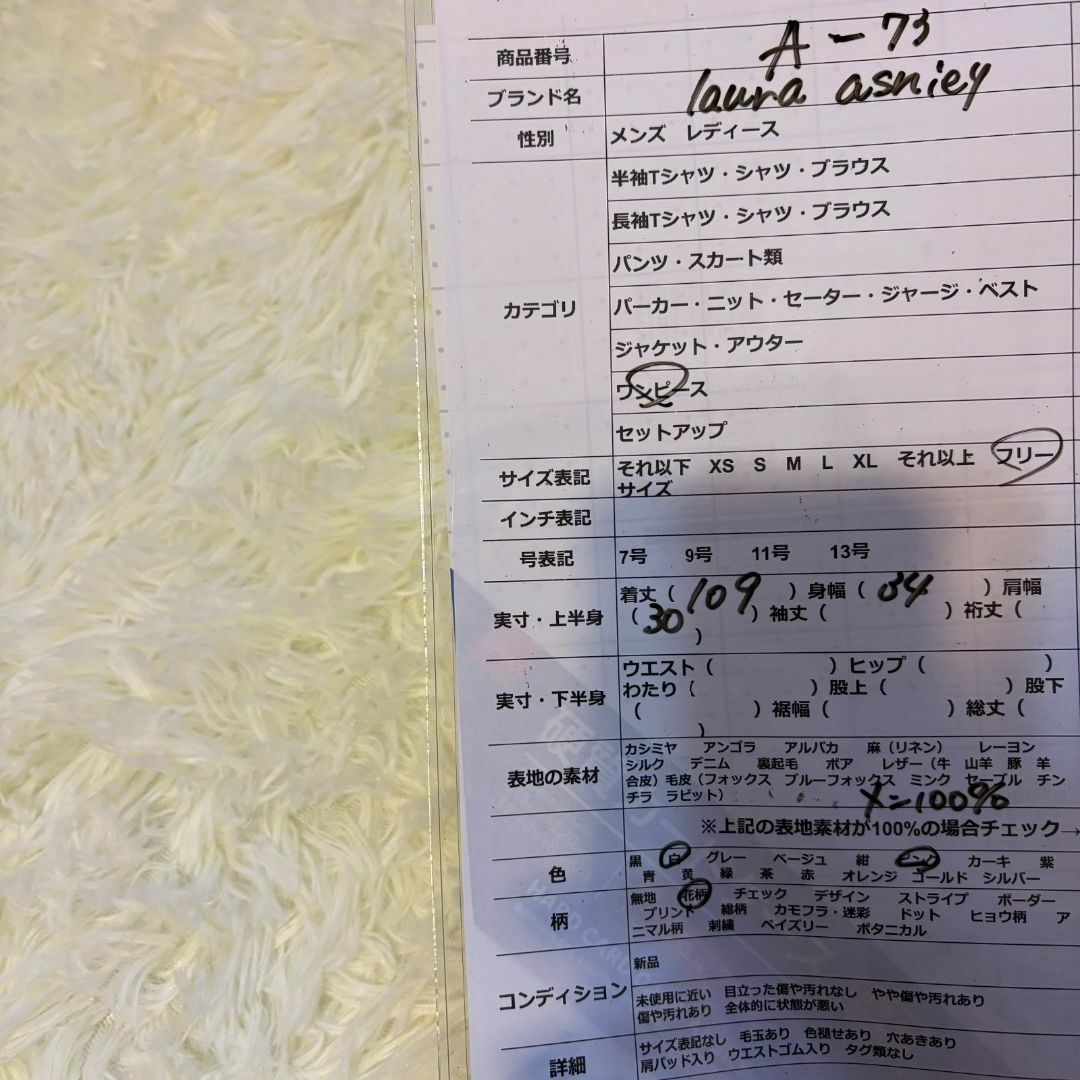 商品番号 A-73
ブランド名 laura asniey
性別 メンズ レディース
カテゴリ
半袖Tシャツ・シャツ・ブラウス
長袖Tシャツ・シャツ・ブラウス
パンツ・スカート類
パーカー・ニット・セーター・ジャージ・ベスト
ジャケット・アウター
ワンピース
セットアップ
サイズ表記 それ以下 XS S M L XL それ以上 フリー
サイズ
インチ表記
号表記 7号 9号 11号 13号
実寸・上半身 着丈(109)身幅(34)肩幅
(30)袖丈( )裄丈(
)
実寸・下半身 ウエスト( )ヒップ( )
わたり( )股上( )股下
( )裾幅( )総丈(
)
表地の素材 カシミヤ アンゴラ アルパカ 麻(リネン) レーヨン
シルク デニム 裏起毛 ボア レザー(牛 山羊 豚 羊
合皮)毛皮(フォックス ブルーフォックス ミンク セーブル チン
チラ ラビット) メン100%
※上記の表地素材が100%の場合チェック→
色 黒 白 グレー ベージュ 紺 ピンク カーキ 紫
青 黄 緑 茶 赤 オレンジ ゴールド シルバー
柄 無地 花柄 チェック デザイン ストライプ ボーダー
プリント 総柄 カモフラ・迷彩 ドット ヒョウ柄 ア
ニマル柄 刺繍 ペイズリー ボタニカル
コンディション 新品
未使用に近い 目立った傷や汚れなし やや傷や汚れあり
傷や汚れあり 全体的に状態が悪い
詳細 サイズ表記なし 毛玉あり 色褪せあり 穴あきあり
肩パッド入り ウエストゴム入り タグ類なし